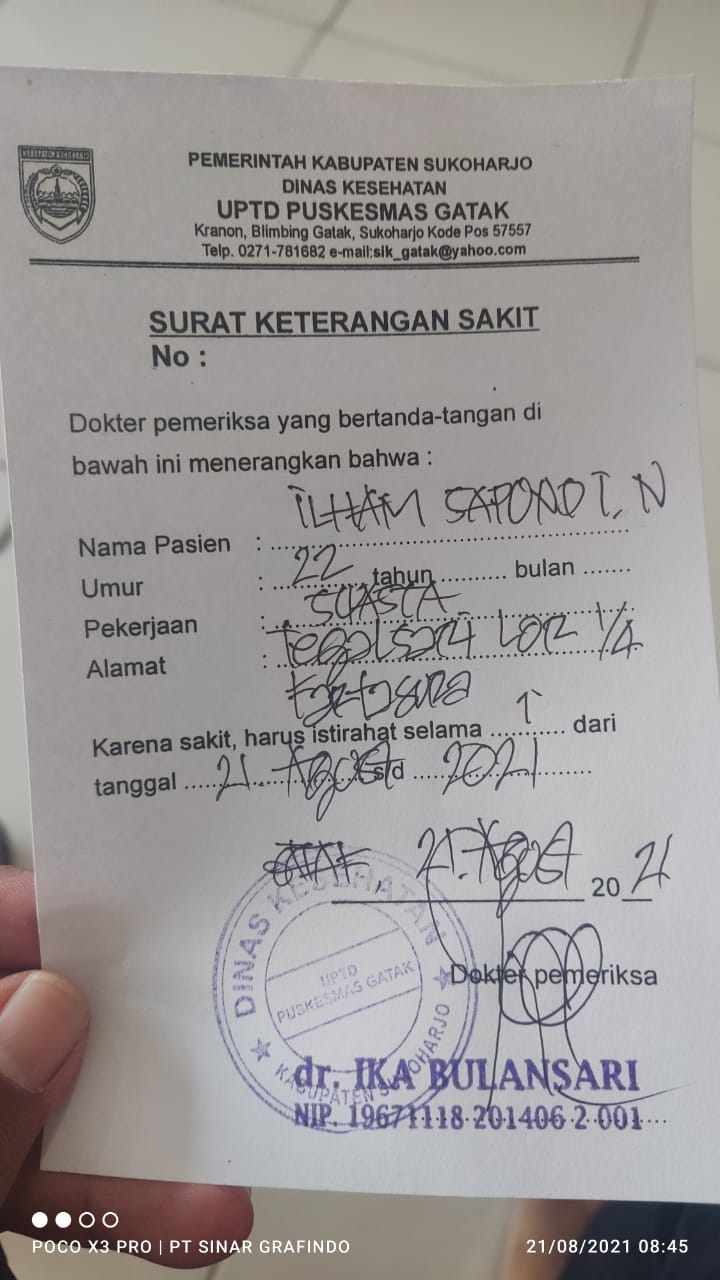 KABUPATEN SUKOHARJO
PEMERINTAH KABUPATEN SUKOHARJO
DINAS KESEHATAN
UPTD PUSKESMAS GATAK
Kranon, Blimbing Gatak, Sukoharjo Kode Pos 57557
Telp. 0271-781682 e-mail:sik_gatak@yahoo.com
SURAT KETERANGAN SAKIT
No :
Dokter pemeriksa yang bertanda-tangan di
bawah ini menerangkan bahwa :
Nama Pasien : ILHAM SAPONO T. N
Umur : 22 tahun .......... bulan .......
Pekerjaan : SUASTA
Alamat : Tegalsari LOR 1/4
Kartasura
Karena sakit, harus istirahat selama ........... dari
tanggal 21 Agost s/d 2021
21 Agost 2021
DINAS KESEHATAN
UPTD
PUSKESMAS GATAK
KABUPATEN SUKOHARJO
Dokter pemeriksa
dr. IKA BULANSARI
NIP. 19671118 201406 2 001
POCO X3 PRO | PT SINAR GRAFINDO
21/08/2021 08:45